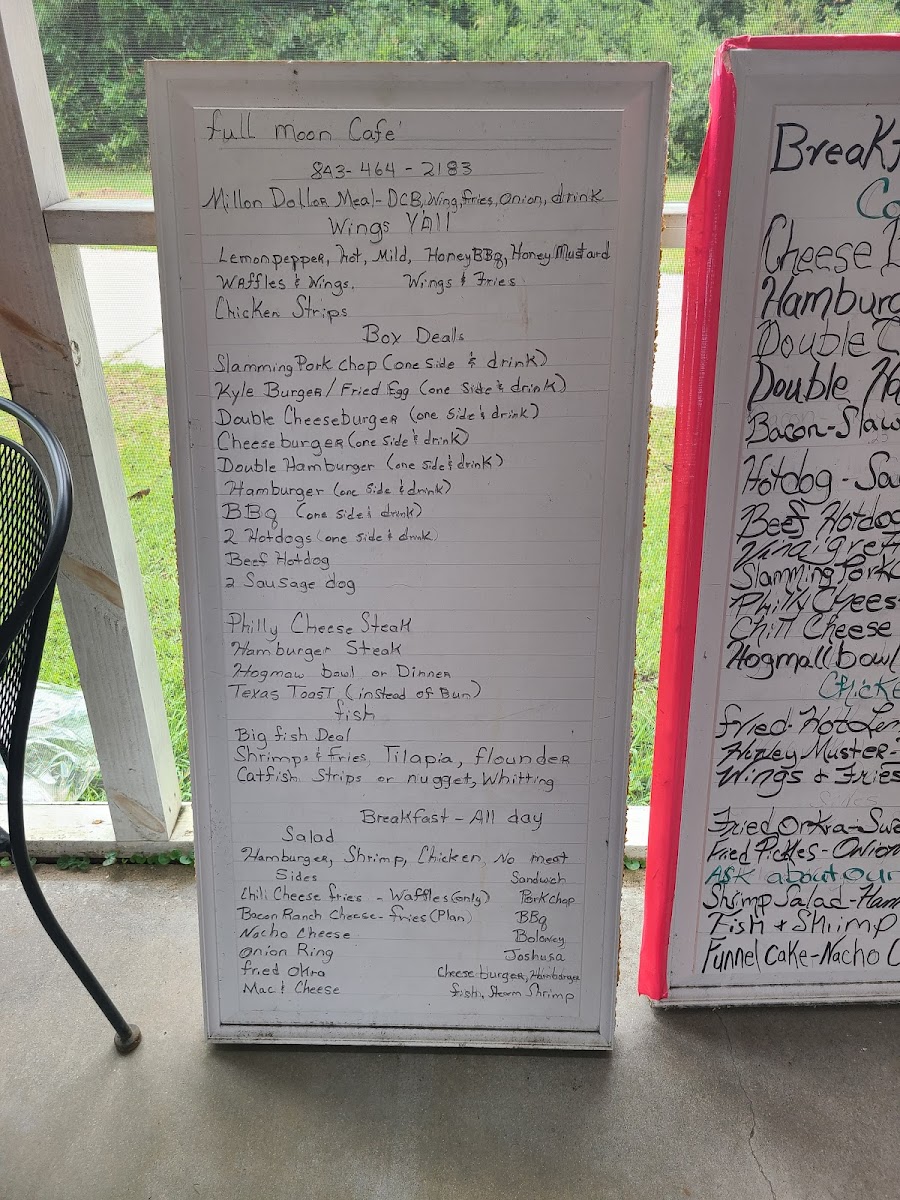 full moon Cafe'
843-464-2183
Millon Dollar Meal- DCB, Wing, fries, Onion, drink
Wings Y'all
Lemonpepper, hot, Mild, HoneyBBq, Honey Mustard
Waffles & Wings. Wings & Fries
Chicken Strips
Box Deals
Slamming Pork chop (one side & drink)
Kyle Burger / Fried Egg (one side & drink)
Double Cheeseburger (one side & drink)
Cheeseburger (one side & drink)
Double Hamburger (one side & drink)
Hamburger (one side & drink)
BBq (one side & drink)
2 Hotdogs (one side & drink)
Beef Hotdog
2 Sausage dog
Philly Cheese Steak
Hamburger Steak
Hogmaw bowl or Dinner
Texas Toast (instead of Bun)
fish
Big fish Deal
Shrimps & Fries, Tilapia, flounder
Catfish Strips or nugget, Whitting
Breakfast - All day
Salad
Hamburger, Shrimp, Chicken, No meat
Sides Sandwich
Chili Cheese fries - Waffles (only) Porkchop
Bacon Ranch Cheese- fries (Plan) BBq
Nacho Cheese Boloney
Onion Ring Joshusa
fried Okra Cheeseburger, Hamburger
Mac & Cheese fish, Steam Shrimp
Breakf
Co
Cheese B
Hamburg
Double C
Double Ha
Bacon-Slaw
Hotdog - Sau
Beef Hotdog
Vinaigrett
Slamming Pork
Philly Chees
Chill Cheese
Hogmall bowl
Chicke
Fried-Hot Lem
Honey Muster-
Wings & Fries
Sides
Fried Orkra-Swe
Fried Pickles-Onion
Ask about our
Shrimp Salad-Ham
Fish + Shrimp
Funnel Cake-Nacho C